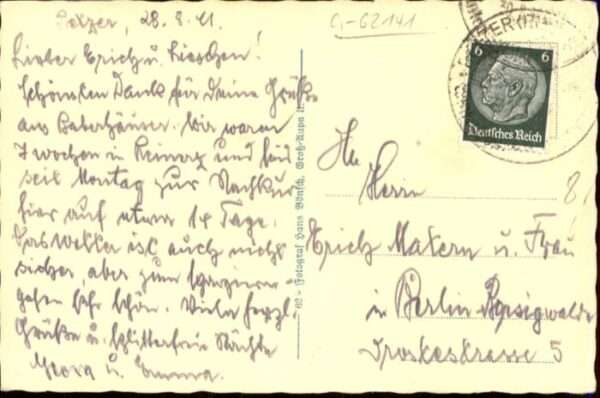 Petzer, 28.8.41.
Lieber Erich u. Lieschen!
Schönsten Dank für Deine Grüße
aus Baberhäuser. Wir waren
7 Wochen in Reinerz und sind
seit Montag zur Nachkur
hier auf etwa 14 Tage.
Das Wetter ist auch nicht
sicher, aber zum Spazieren-
gehen sehr schön. Viele herzl.
Grüße u. splitterfreie Nächte
Georg u. Emma.
C1-G2141
62 - Fotograf Hans Bönsch, Groß-Aupa II.
PETZER
6 6
Deutsches Reich
An
Herrn
Erich Matern u. Frau
in Berlin Borsigwalde
5